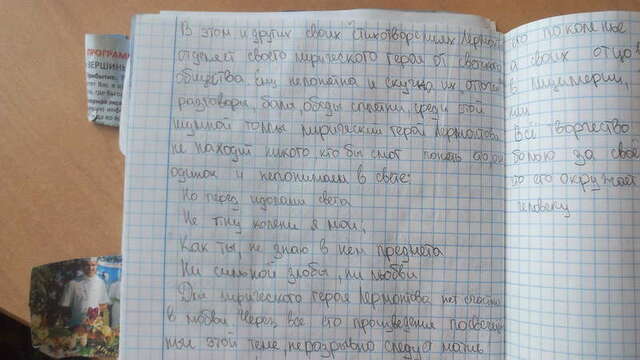 В этом и других своих стихотворениях Лермонт
отделяет своего лирического героя от светского
общества. Ему непонятна и скучна их
разговоры, балы, обеды, сплетни. Среди этой
шумной толпы лирический герой Лермонтова
не находит никого, кто бы смог понять его, он
одинок и непонимаем в свете:
Но перед идолами света
Не гну колени я мои;
Как ты, не знаю в нем предмета
Ни сильной злобы, ни любви
Для лирического героя Лермонтова нет счастья
в любви. Через все его произведения посвящен
ные этой теме, неразрывно следует мотив
поколенье
а своих отцов
в лицемерии,
ми
Всё творчество
болью за своё
то его окружает
человеку
ПРОГРАММ
ВЕРШИНЫ